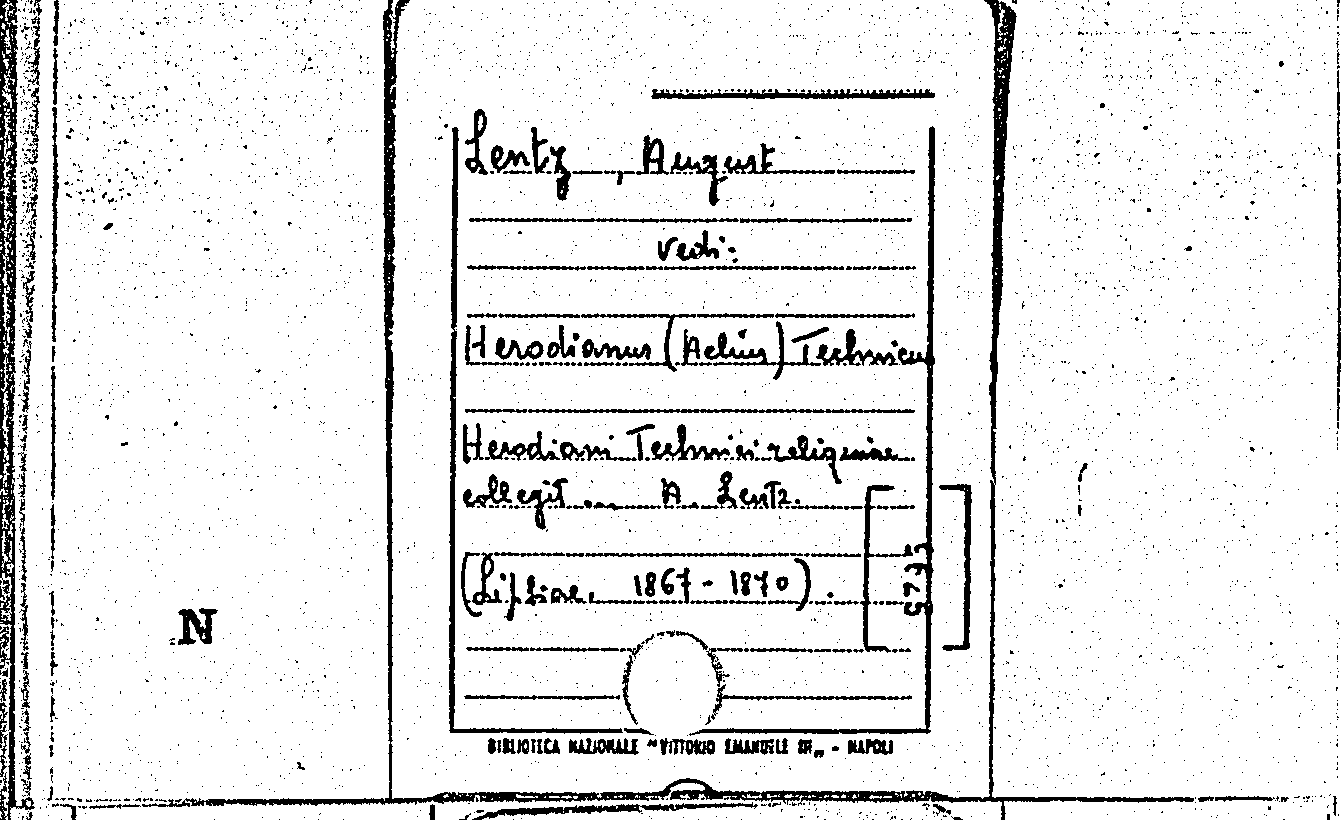 Lentz, August
vedi:
Herodianus (Aelius) Technicus
Herodiani Technici reliquiae
collegit ... A. Lentz.
(Lipsiae, 1867-1870).
N
BIBLIOTECA NAZIONALE "VITTORIO EMANUELE III" - NAPOLI